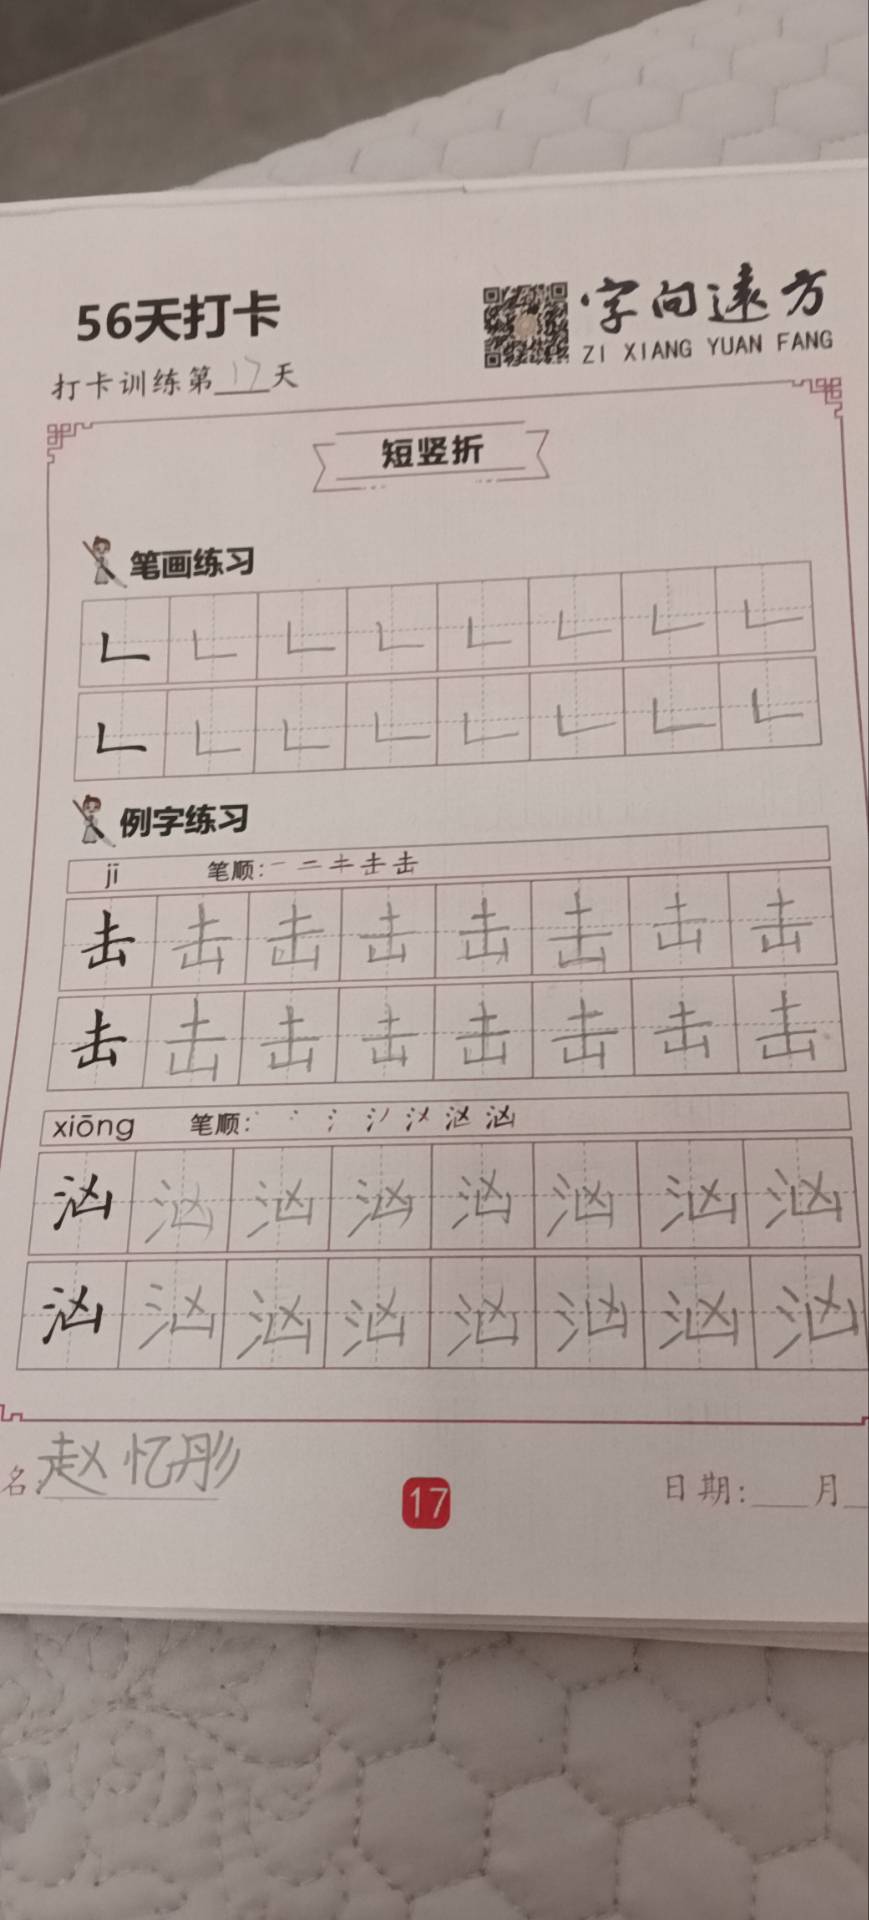 56天打卡
字向远方
ZI XIANG YUAN FANG
打卡训练第17天
短竖折
笔画练习
𠃊 𠃊 𠃊 𠃊 𠃊 𠃊 𠃊 𠃊
𠃊 𠃊 𠃊 𠃊 𠃊 𠃊 𠃊 𠃊
例字练习
jī 笔顺:一 二 キ 击 击
击 击 击 击 击 击 击 击
击 击 击 击 击 击 击 击
xiōng 笔顺:
汹 汹 汹 汹 汹 汹 汹 汹
汹 汹 汹 汹 汹 汹 汹 汹
名:赵忆彤
17
日期:___月